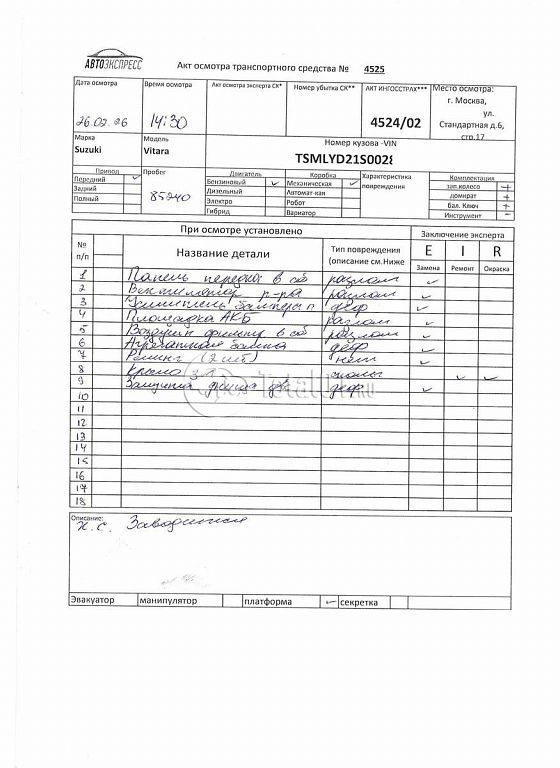 АВТОЭКСПРЕСС
Акт осмотра транспортного средства № 4525
Дата осмотра
26.02.26
Время осмотра
14:30
Акт осмотра эксперта СК*
Номер убытка СК**
АКТ ИНГОССТРАХ***
4524/02
Место осмотра:
г. Москва,
ул.
Стандартная д.6,
стр.17
Марка
Suzuki
Модель
Vitara
Номер кузова -VIN
TSMLYD21S0028
Привод
Передний
Задний
Полный
Пробег
85240
Двигатель
Бензиновый
Дизельный
Электро
Гибрид
Коробка
Механическая
Автомат-кая
Робот
Вариатор
Характеристика
повреждения
Комплектация
зап.колесо +
домкрат +
бал. Ключ +
Инструмент -
При осмотре установлено
Заключение эксперта
№
п/п
Название детали
Тип повреждения
(описание см.Ниже
E I R
Замена Ремонт Окраска
1 Панель передка в сб разлом
2 Вентилятор р-ра разлом
3 Усилитель бампера п деф
4 Площадка АКБ разлом
5 Воздушн фильтр в сб разлом
6 деф
7 (2 шт) нет
8 Крыло з л сколы
9 Защита днища дв деф
10
11
12
13
14
15
16
17
18
TotalCar.RU
Описание:
Н.С. Заводится
Эвакуатор манипулятор платформа секретка